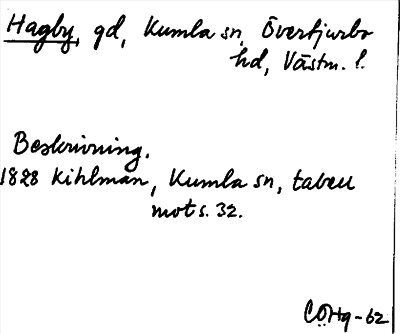 Hagby, gd, Kumla sn, Övertjurbo
hd, Västm. l.
Beskrivning.
1828 Kihlman, Kumla sn, tabell
mot s. 32.
COHg-62